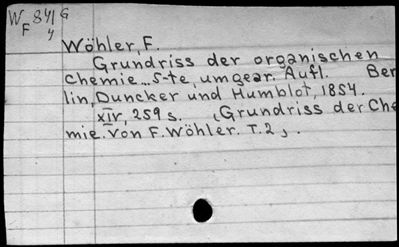 W 841 G
F 4
Wöhler, F.
Grundriss der organischen
Chemie... 5-te, umgear. Aufl. Ber
lin, Duncker und Humblot, 1854.
XIV, 259 s. (Grundriss der Che
mie. Von F. Wöhler. T. 2).